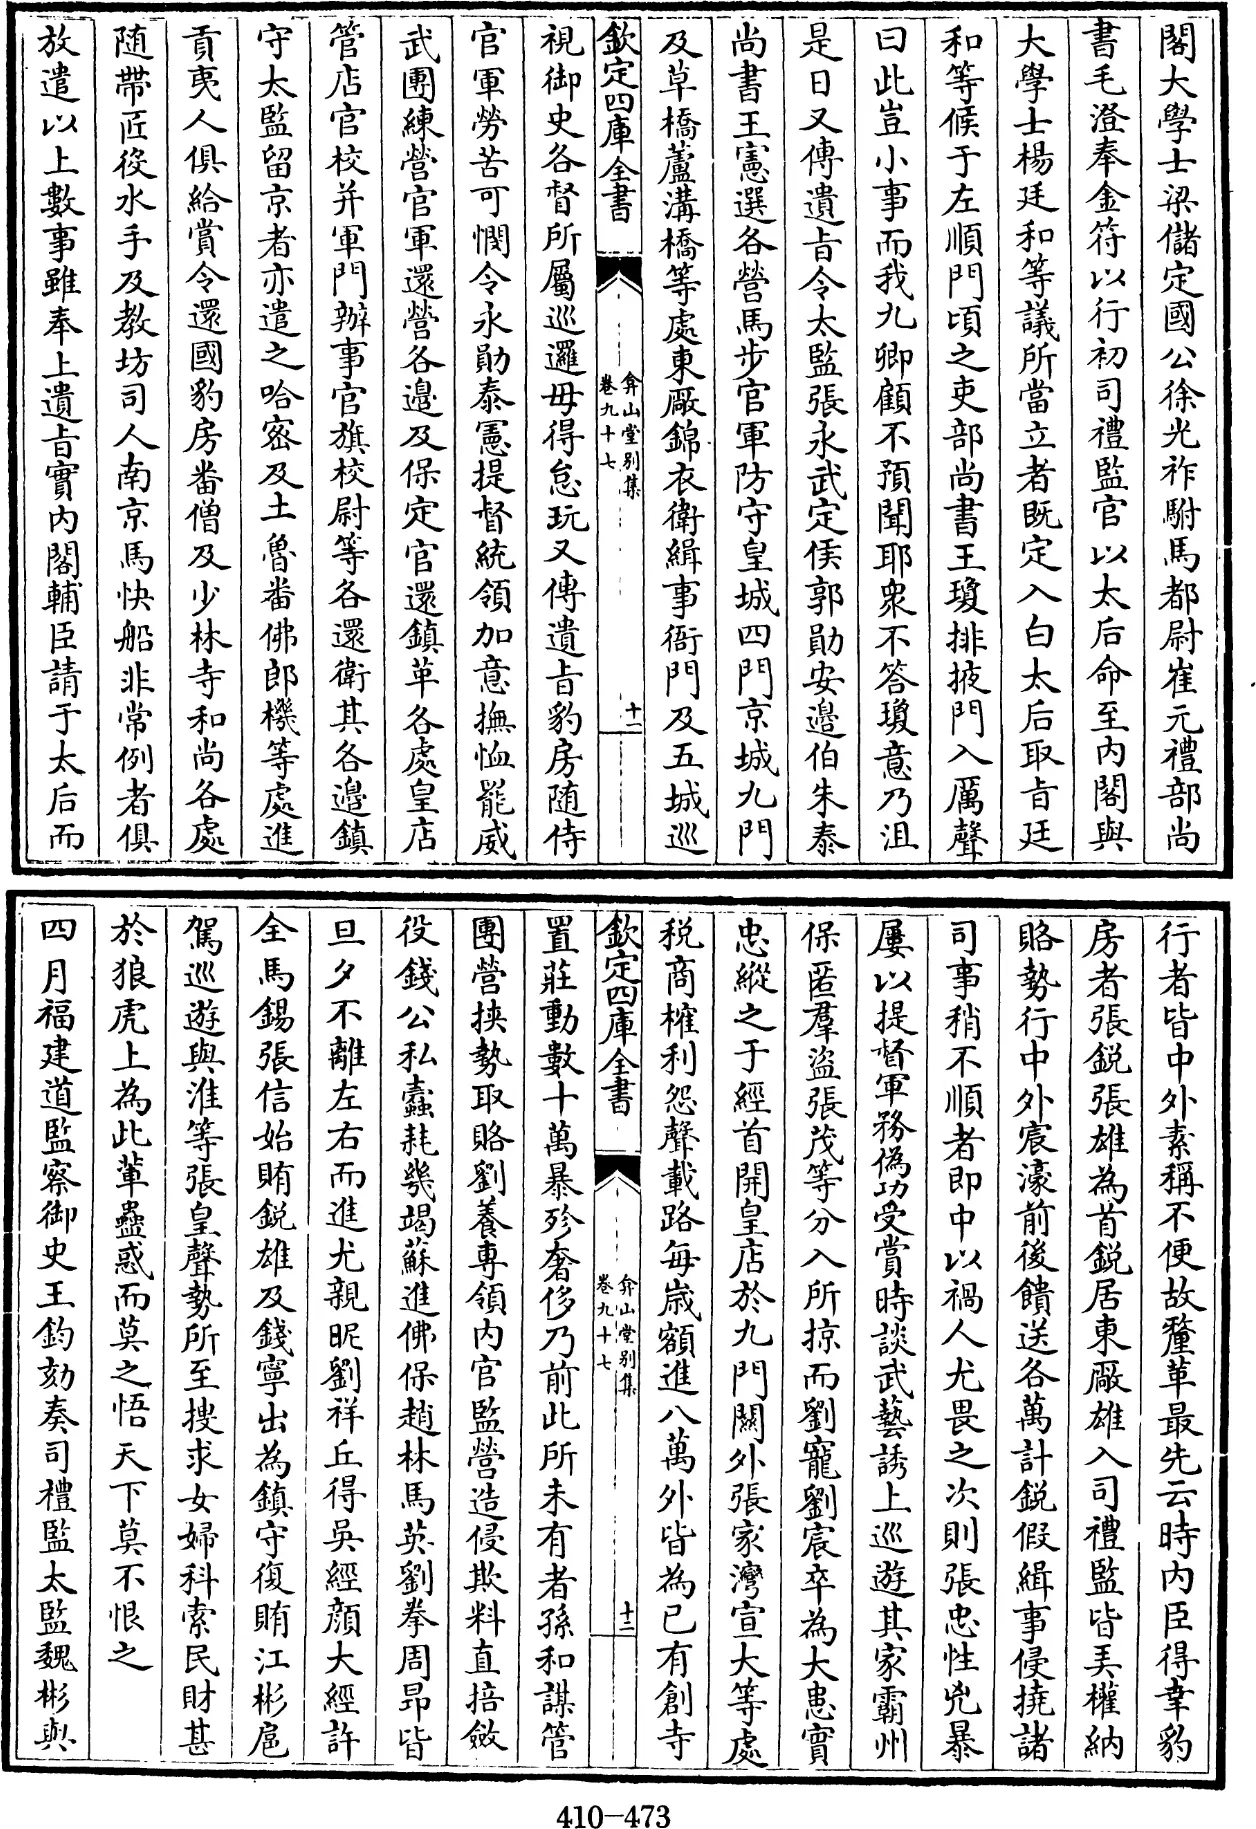 閣大學士梁儲定國公徐光祚駙馬都尉崔元禮部尚
書毛澄奉金符以行初司禮監官以太后命至内閣與
大學士楊廷和等議所當立者既定入白太后取㫖廷
和等候于左順門頃之吏部尚書王瓊排掖門入厲聲
曰此豈小事而我九卿顧不預聞耶衆不答瓊意乃沮
是日又傳遺㫖令太監張永武定侯郭勛安邉伯朱泰
尚書王憲選各營馬步官軍防守皇城四門京城九門
及草橋蘆溝橋等處東廠錦衣衛緝事衙門及五城巡
欽定四庫全書
弇山堂别集
卷九十七
十一
視御史各督所屬巡邏毋得怠玩又傳遺㫖豹房随侍
官軍勞苦可憫令永勛泰憲提督統領加意撫恤罷威
武團練營官軍還營各邉及保定官還鎮革各處皇店
管店官校并軍門辦事官旗校尉等各還衛其各邉鎮
守太監留京者亦遣之哈密及土魯番佛郎機等處進
貢夷人俱給賞令還國豹房番僧及少林寺和尚各處
随帶匠役水手及教坊司人南京馬快船非常例者俱
放遣以上數事雖奉上遺㫖實内閣輔臣請于太后而
行者皆中外素稱不便故釐革最先云時内臣得幸豹
房者張鋭張雄為首鋭居東廠雄入司禮監皆弄權納
賂勢行中外宸濠前後饋送各萬計鋭假緝事侵撓諸
司事稍不順者即中以禍人尤畏之次則張忠性兇暴
屢以提督軍務偽功受賞時談武藝誘上巡遊其家霸州
保匿羣盜張茂等分入所掠而劉寵劉宸卒為大患實
忠縱之于經首開皇店於九門關外張家灣宣大等處
稅商榷利怨聲載路每嵗額進八萬外皆為已有創寺
欽定四庫全書
弇山堂别集
卷九十七
十二
置莊動數十萬暴殄奢侈乃前此所未有者孫和謀管
團營挾勢取賂劉養專領内官監營造侵欺料直掊斂
役錢公私蠧耗㡬竭蘇進佛保趙林馬英劉拳周昂皆
旦夕不離左右而進尤親昵劉祥丘得吳經顔大經許
全馬錫張信始賄鋭雄及錢寧出為鎮守復賄江彬扈
駕巡遊與淮等張皇聲勢所至搜求女婦科索民財甚
於狼虎上為此輩蠱惑而莫之悟天下莫不恨之
四月福建道監察御史王鈞劾奏司禮監太監魏彬與
410-473